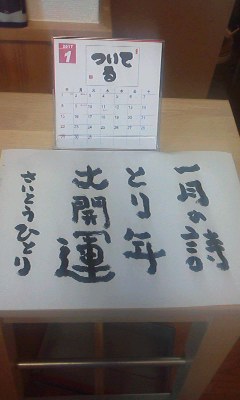 2017
1
ついて
る
一月の詩
とり年
大開運
さいとうひとり